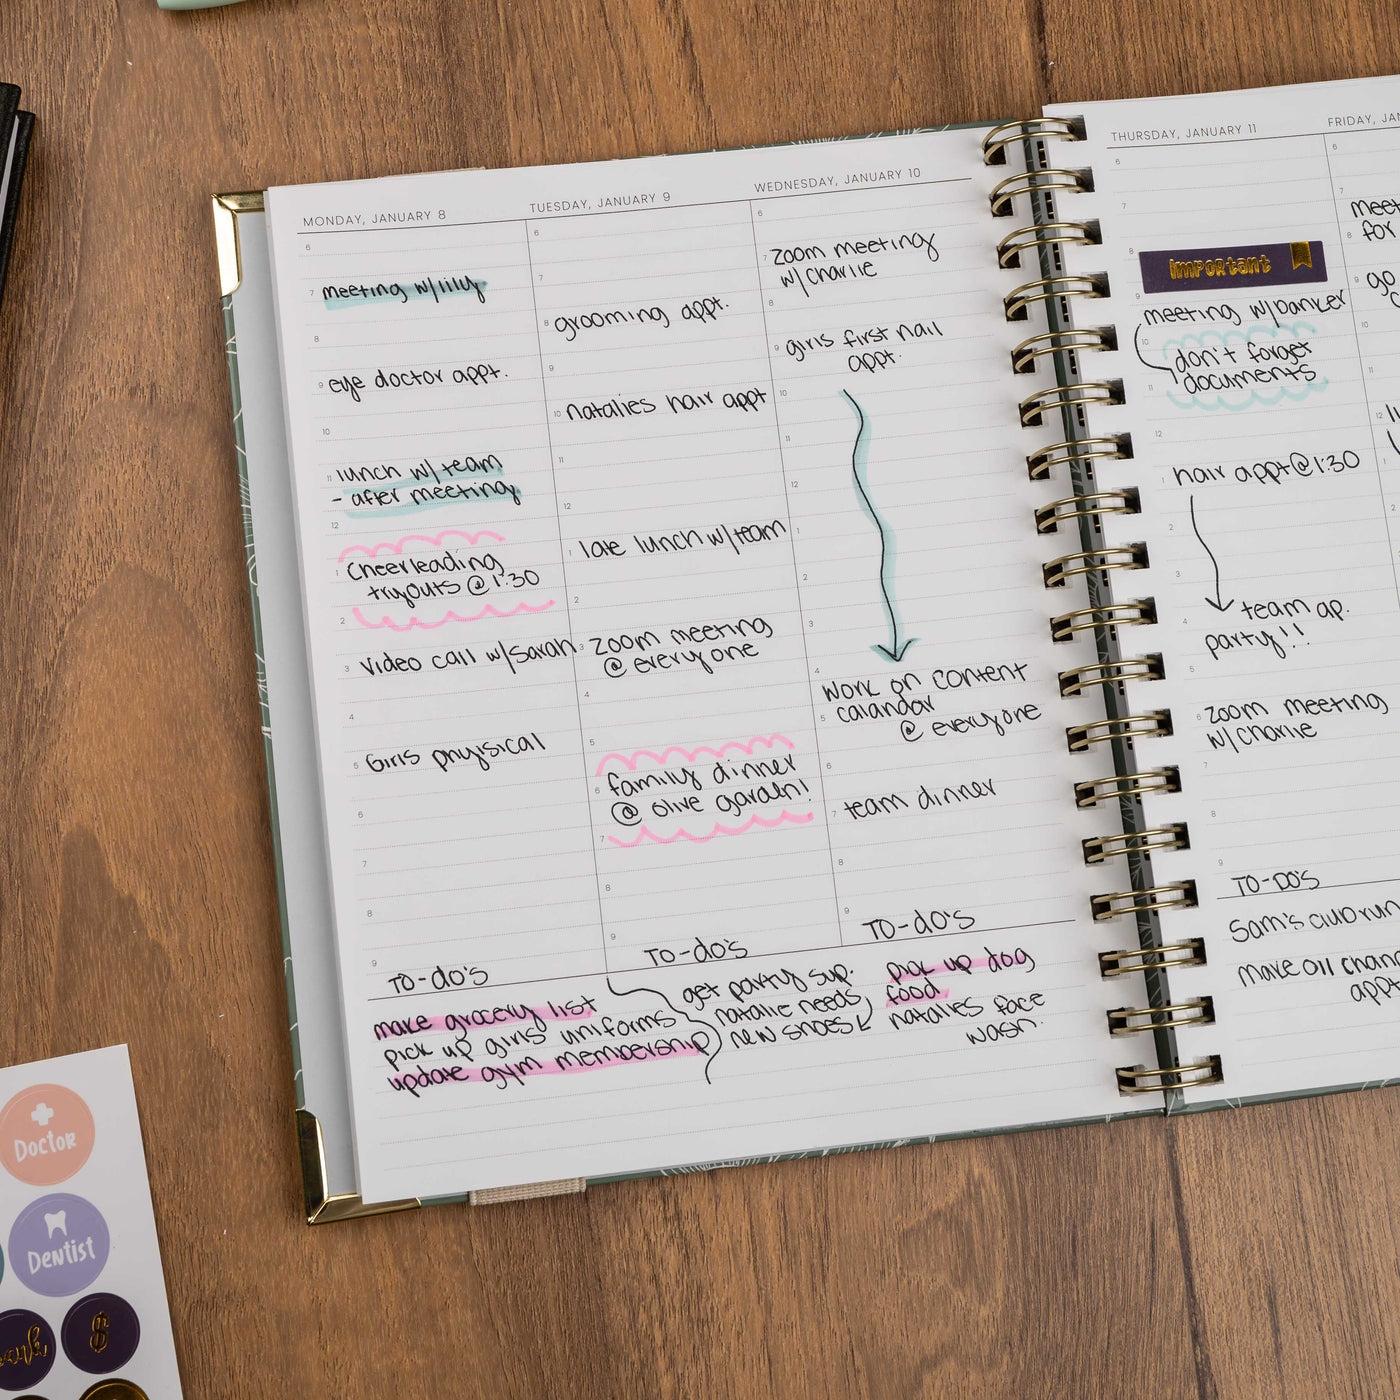 MONDAY, JANUARY 8
6
7 meeting w/lily
8
9 eye doctor appt.
10
11 lunch w/ team
- after meeting
12
1 Cheerleading
tryouts @ 1:30
2
3 video call w/Sarah
4
5 Girls phyisical
6
7
8
9
TO-do's
make grocery list
pick up girls' uniforms
update gym membership
TUESDAY, JANUARY 9
6
7
8 grooming appt.
9
10 natalies hair appt
11
12
1 late lunch w/team
2
3 zoom meeting
@ everyone
4
5
6 family dinner
@ olive garden!
7
8
9
TO-do's
get party sup.
natalie needs
new shoes
WEDNESDAY, JANUARY 10
6
7 zoom meeting
w/ Charlie
8
9 girls first nail
appt.
10
11
12
1
2
3
4
work on content
5 calandar
@ everyone
6
7 team dinner
8
9
TO-do's
pick up dog
food
natalies face
wash.
THURSDAY, JANUARY 11
6
7
8
Important
9
meeting w/banker
10
don't forget
11 documents
12
1 hair appt@1:30
2
3
team ap.
4 party!!
5
6 zoom meeting
w/Charlie
7
8
9
TO-DO'S
Sam's club run
make oil chan
appt
FRIDAY, JAN
6
7
meet
8 for
9 go
10
11
12
1
2
Doctor
Dentist
$